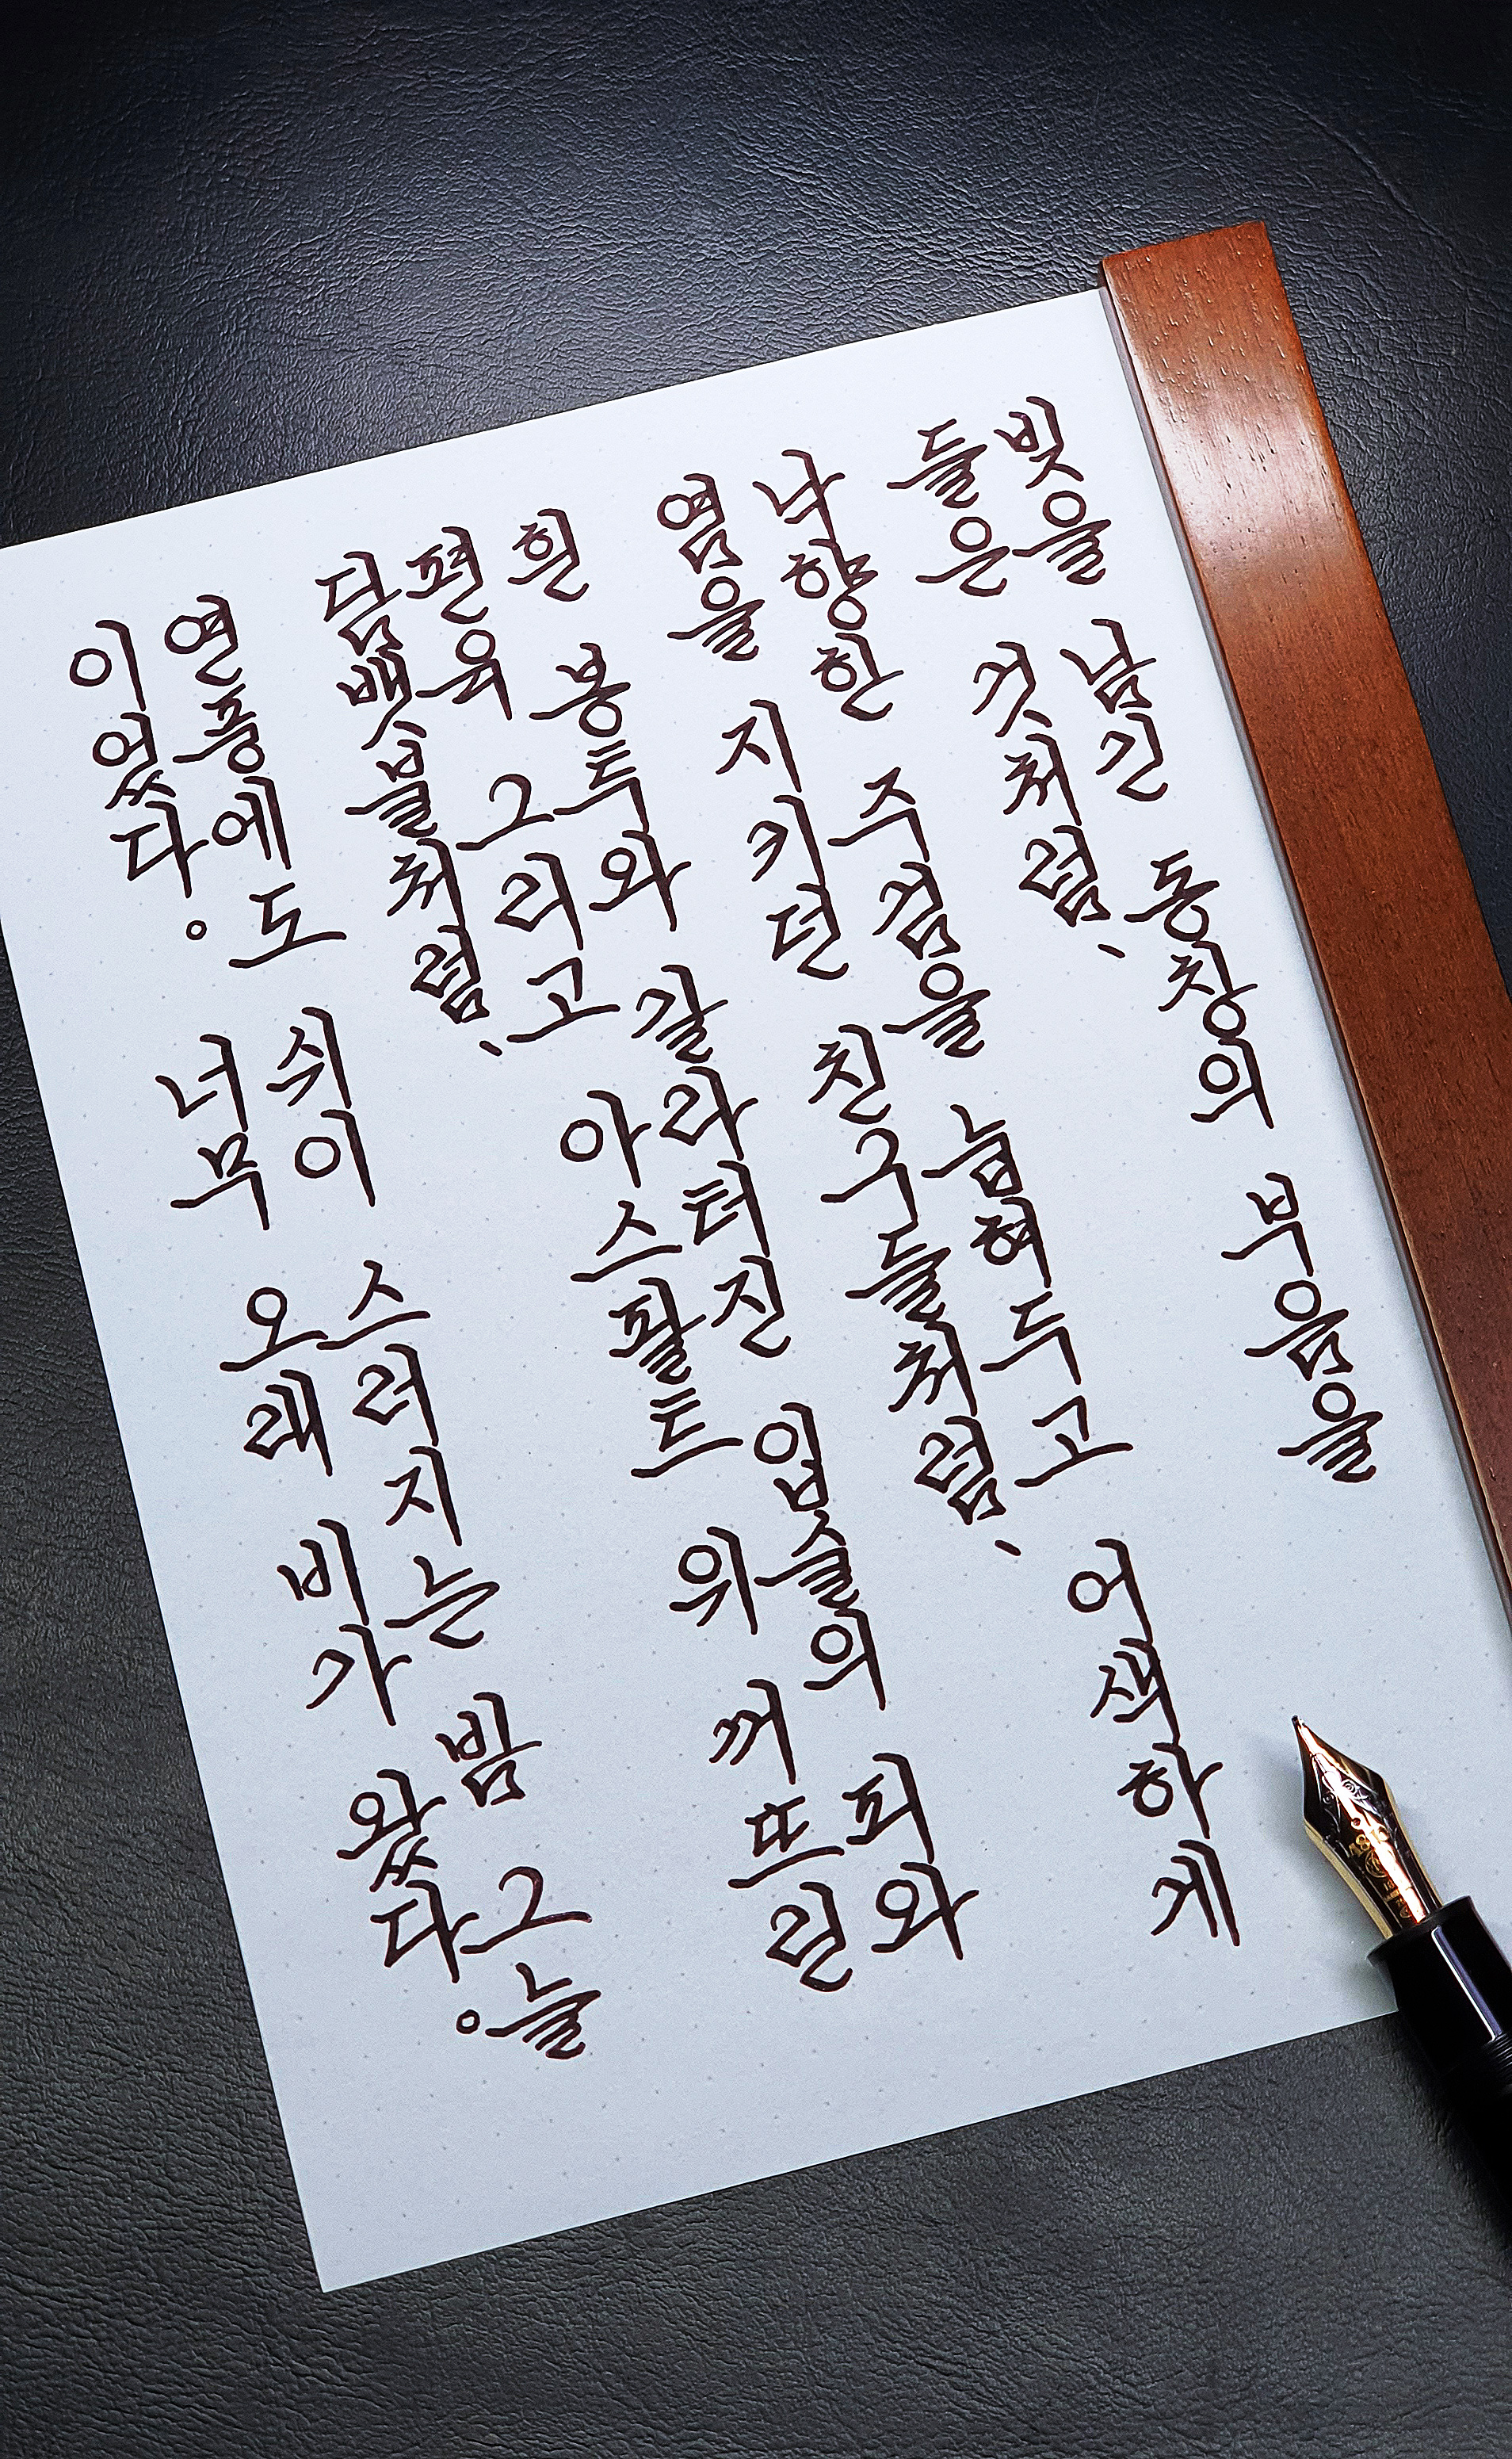 빚을 남긴 동창의 부음을
들은 것처럼、
낙향한 주검을 눕혀두고 어색하게
염을 지키던 친구들처럼、
흰 봉투와 갈라터진 입술의 피와
편육 그리고 아스팔트 위 꺼뜨린
담뱃불처럼、
연풍에도 쉬이 스러지는 밤 그늘
이었다。 너무 오래 비가 왔다。